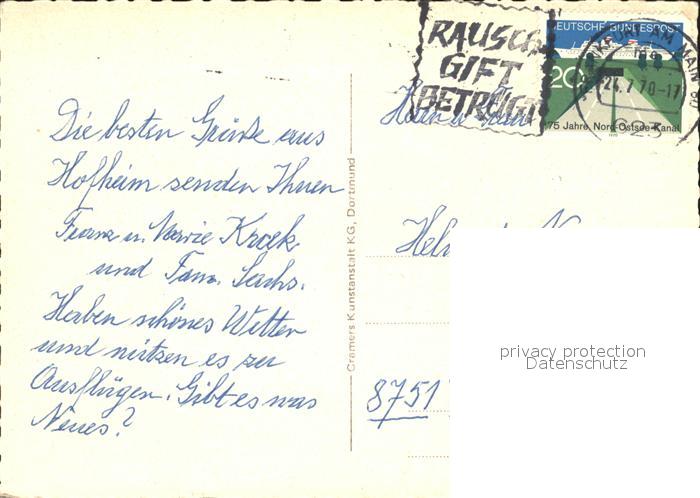 Die besten Grüße aus
Hofheim senden Ihnen
Franz u. Marie Kroek
und Fam. Sachs.
Haben schönes Wetter
und nützen es zu
Ausflügen. Gibt es was
Neues?
Cramers Kunstanstalt KG, Dortmund
RAUSCH
GIFT
BETRÜGT
DEUTSCHE BUNDESPOST
20
75 Jahre Nord-Ostsee-Kanal
24.7.70-17
623
8751
privacy protection
Datenschutz